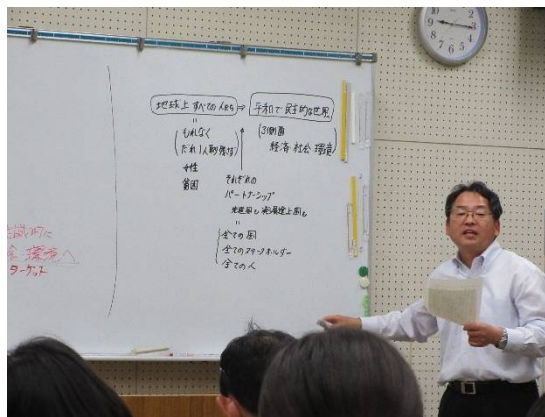 地球上すべての人たち ⇒ 平和で民主的な世界
=
もれなく
だれ1人取り残さない
女性
貧困
3側面
経済・社会・環境
それぞれの
パートナーシップ
先進国も 発展途上国も
=
全ての国
全てのステークホルダー
全ての人
環境へ
ターゲット
9
8
7
6
5
4
3